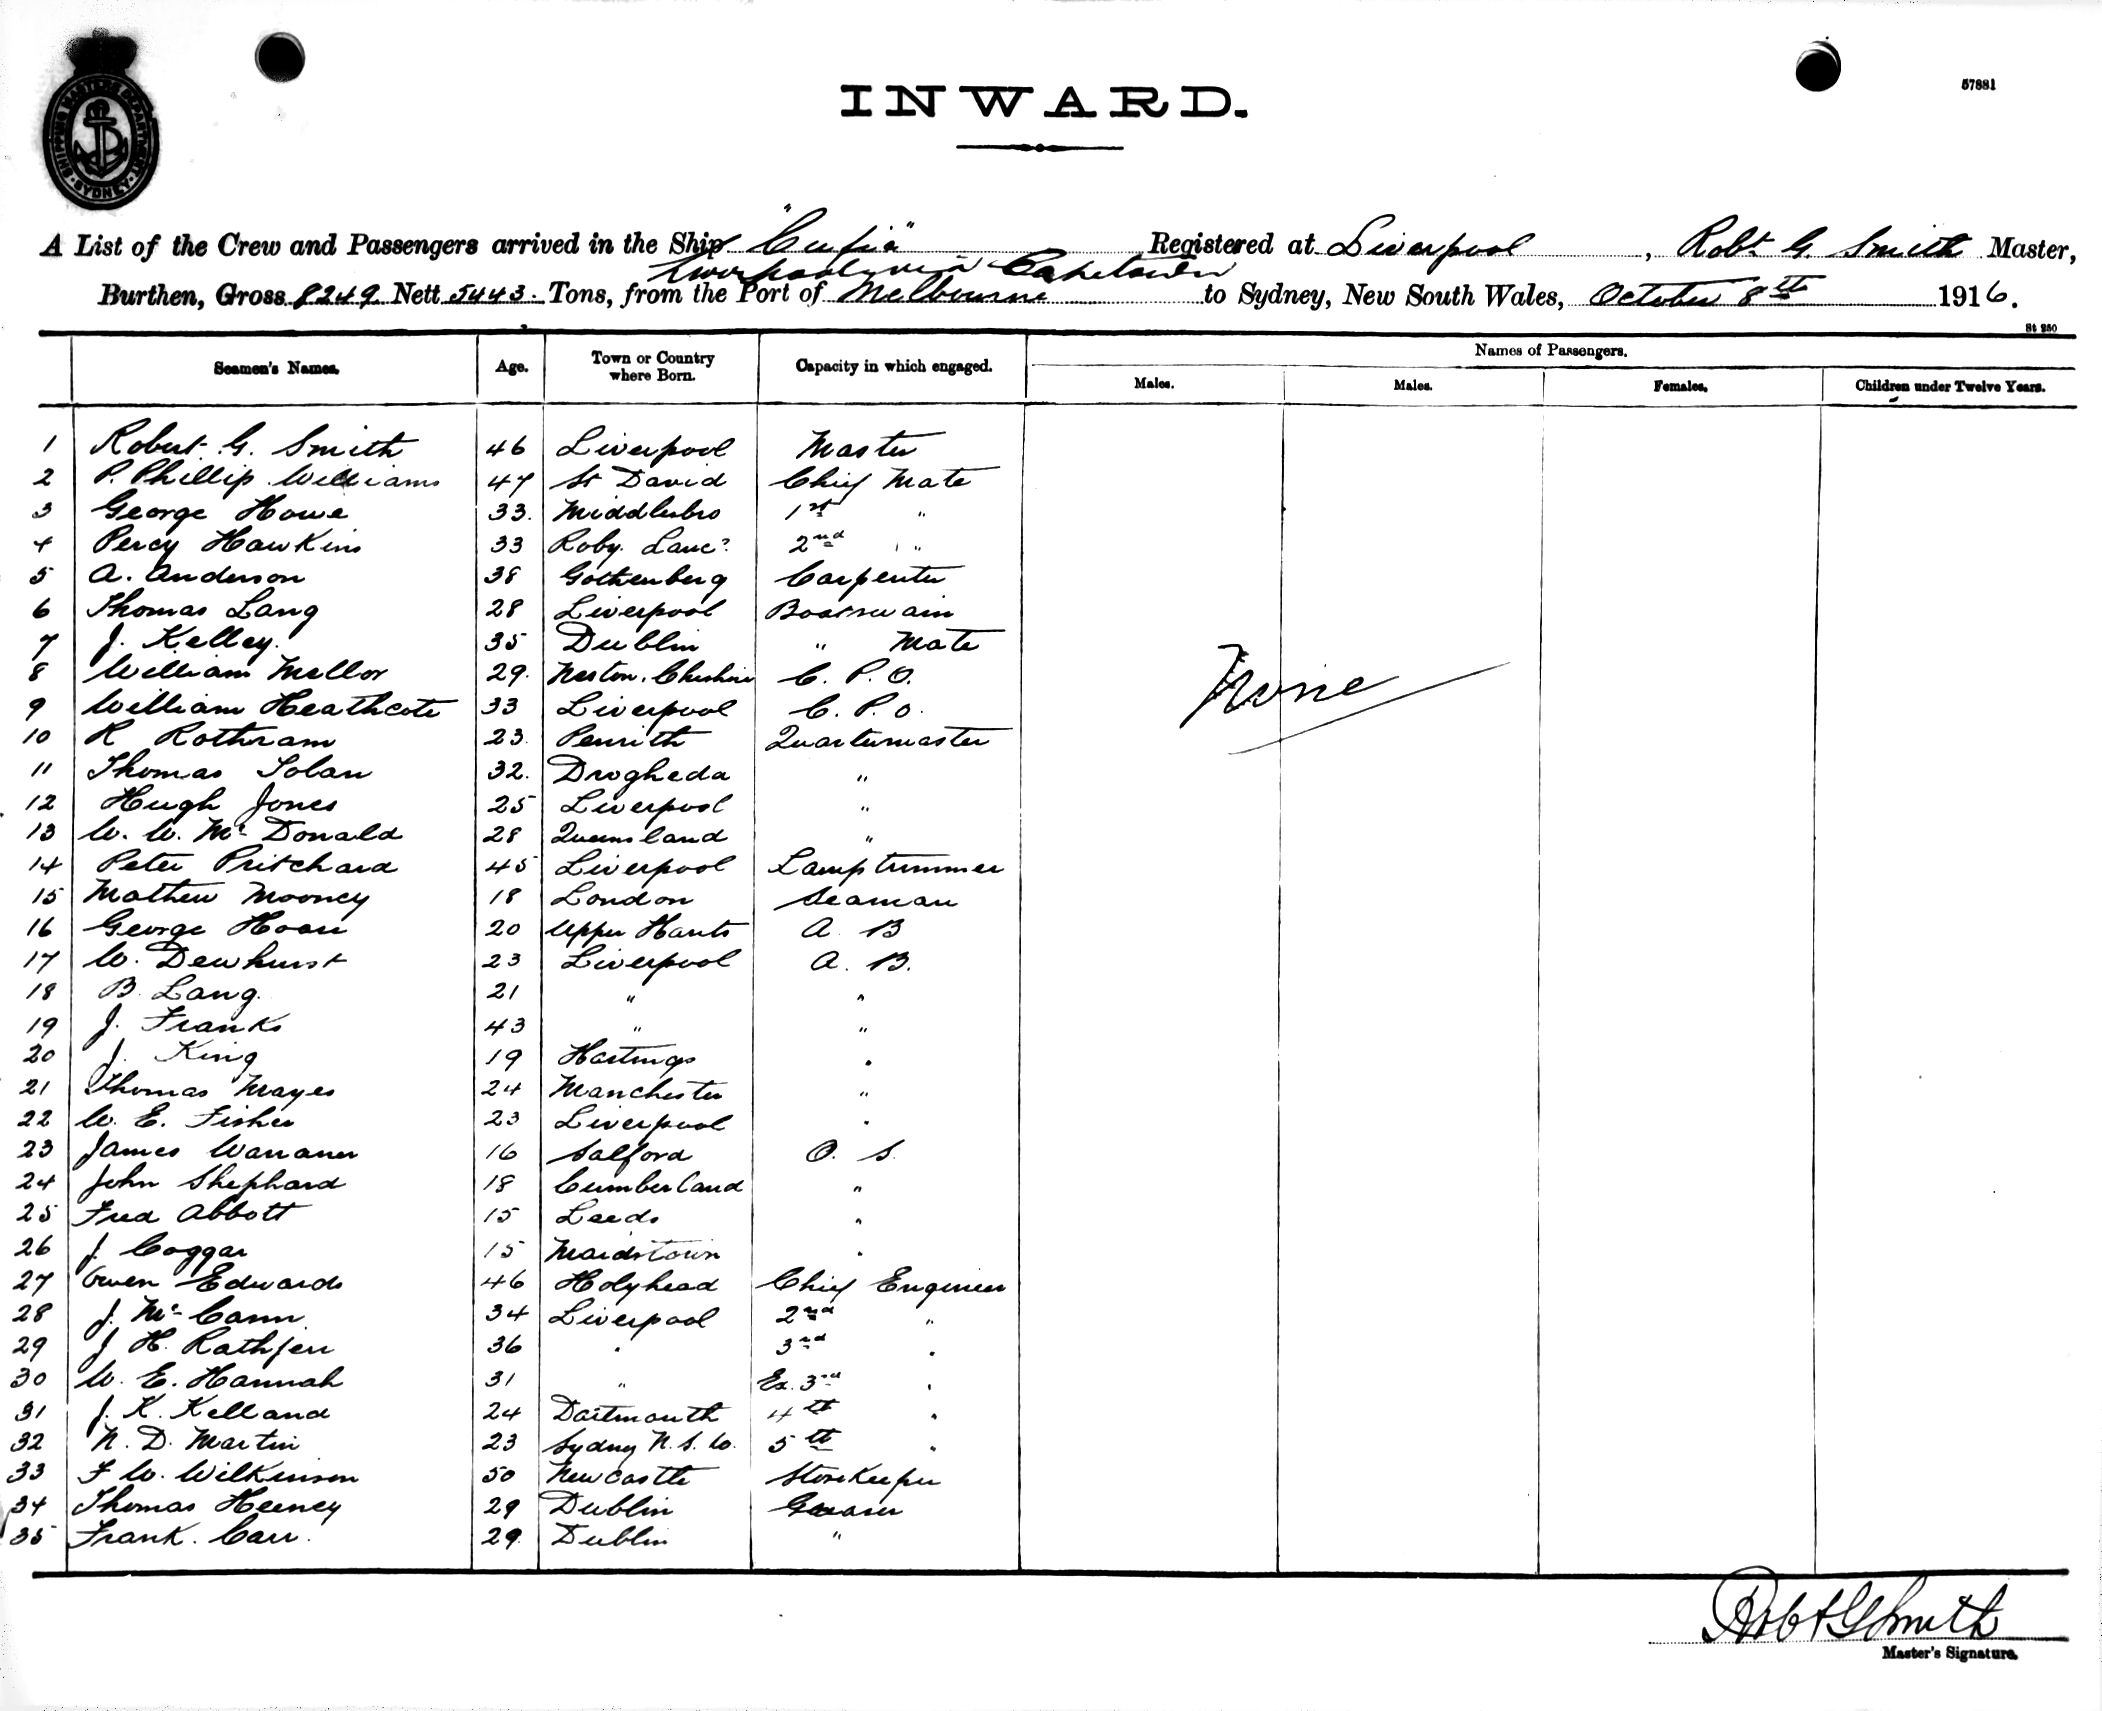 SHIPPING MASTERS DEPARTMENT SYDNEY
57881
INWARD.
A List of the Crew and Passengers arrived in the Ship "Cufic" Registered at Liverpool, Robt G. Smith Master,
Liverpool via Capetown
Burthen, Gross 8249 Nett 5443. Tons, from the Port of Melbourne to Sydney, New South Wales, October 8th 1916.
St 250
Seamen's Names. Age. Town or Country where Born. Capacity in which engaged. Names of Passengers.
Males. Males. Females. Children under Twelve Years.
1 Robert. G. Smith 46 Liverpool Master
2 P. Phillip Williams 47 St David Chief Mate
3 George Howe 33. Middlesbro 1st "
4 Percy Hawkins 33 Roby. Lanc. 2nd "
5 A. Anderson 38 Gothenberg Carpenter
6 Thomas Lang 28 Liverpool Boatswain
7 J. Kelley. 35 Dublin " Mate
8 William Mellor 29. Neston. Cheshire C. P. O.
None
9 William Heathcote 33 Liverpool C. P. O.
10 R Rothram 23. Penrith Quartermaster
11 Thomas Tolan 32. Drogheda "
12 Hugh Jones 25 Liverpool "
13 W. W. McDonald 28 Queensland "
14 Peter Pritchard 45 Liverpool Lamptrimmer
15 Mathew Mooney 18 London Seaman
16 George Hoare 20 Upper Hants A B
17 W. Dewhurst 23 Liverpool A. B.
18 B. Lang. 21 " "
19 J. Franks 43 " "
20 J. King 19 Hastings "
21 Thomas Mayes 24 Manchester "
22 W. E. Fisher 23 Liverpool "
23 James Warraner 16 Salford O. S.
24 John Shephard 18 Cumberland "
25 Fred Abbott 15 Leeds "
26 J. Coggar 15 Maidstown "
27 Owen Edwards 46 Holyhead Chief Engineer
28 J. McCann. 34 Liverpool 2nd "
29 J H. Rathjen 36 " 3rd "
30 W. E. Hannah 31 " Ex. 3rd "
31 J. K. Kelland 24 Dartmouth 4th "
32 N. D. Martin 23 Sydney N. S. W. 5th "
33 F W. Wilkinson 50 Newcastle Storekeeper
34 Thomas Heeney 29 Dublin Greaser
35 Frank. Carr. 29. Dublin "
Robt G Smith
Master's Signature.